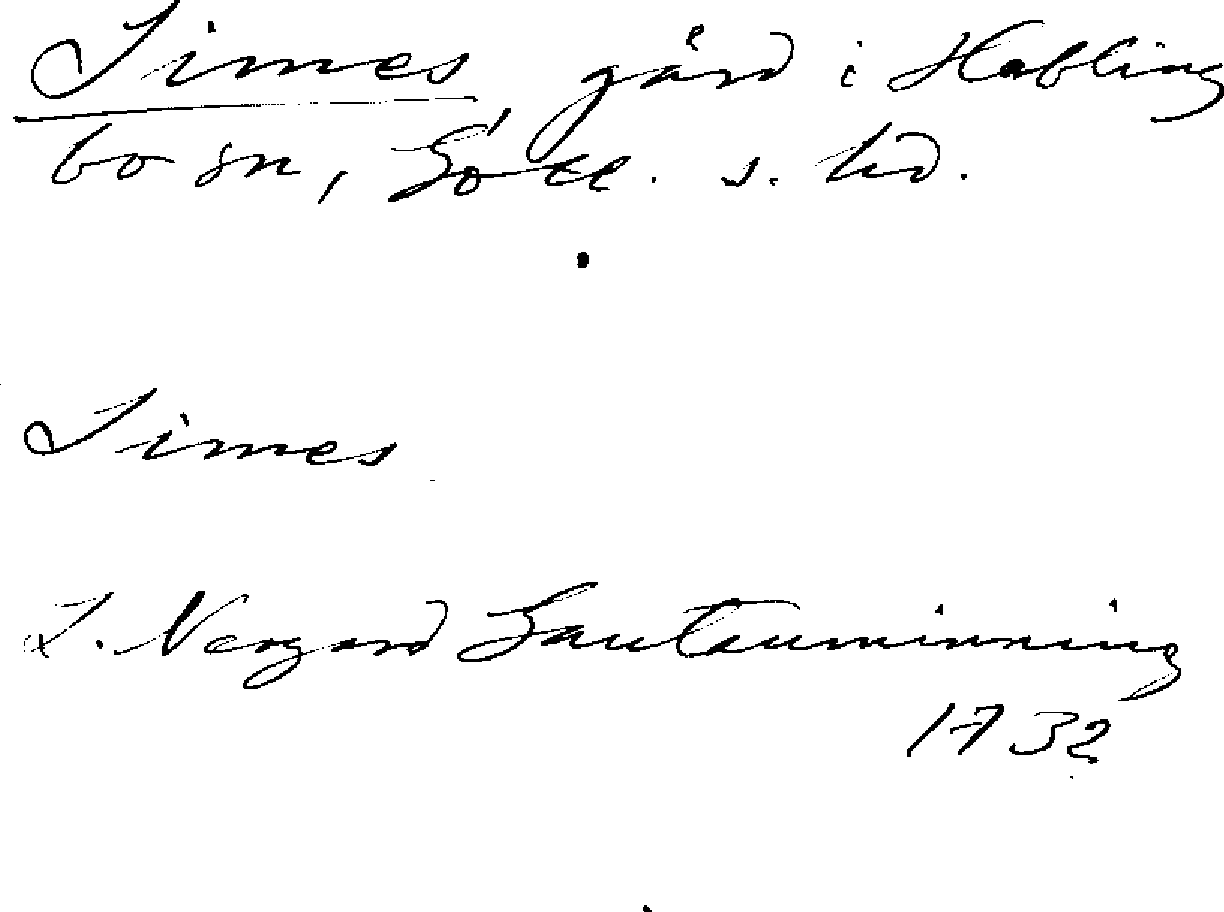 Simes, gård i Habling
bo sn, Gotl. s. hd.
Simes
L. Nergard Gautauminning
1732